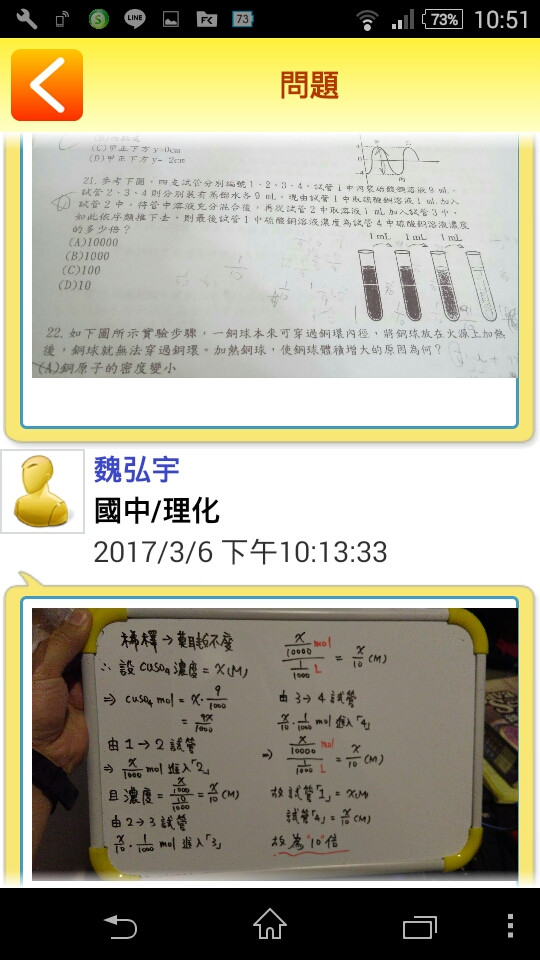 LINE
FK
73
73%
10:51
問題
(C)甲正下方 y=0cm
(D)甲正下方 y=-2cm
21. 參考下圖，四支試管分別編號1、2、3、4，試管1中內裝硫酸銅溶液9 mL，
試管2、3、4則分別裝有蒸餾水各9 mL，現由試管1中取硫酸銅溶液1 mL加入
試管2中，待管中溶液充分混合後，再從試管2中取溶液1 mL加入試管3中，
如此依序類推下去，則最後試管1中硫酸銅溶液濃度為試管4中硫酸銅溶液濃度
的多少倍？
(A)10000
(B)1000
(C)100
(D)10
1 mL 1 mL 1 mL
22. 如下圖所示實驗步驟，一銅球本來可穿過銅環內徑，將銅球放在火源上加熱
後，銅球就無法穿過銅環。加熱銅球，使銅球體積增大的原因為何？
(A)銅原子的密度變小
魏弘宇
國中/理化
2017/3/6 下午10:13:33
稀釋→莫耳數不變
∴ 設 CuSO4 濃度 = x(M)
⇒ CuSO4 mol = x·9/1000
= 9x/1000
由 1→2 試管
⇒ x/1000 mol 進入「2」
且濃度 = (x/1000)/(10/1000) = x/10 (M)
由 2→3 試管
x/10·1/1000 mol 進入「3」
(x/10000 mol)/(1/1000 L) = x/10 (M)
由 3→4 試管
x/10·1/1000 mol 進入「4」
⇒ (x/10000 mol)/(1/1000 L) = x/10 (M)
故試管「1」= x(M)
試管「4」= x/10 (M)
故為 "10" 倍